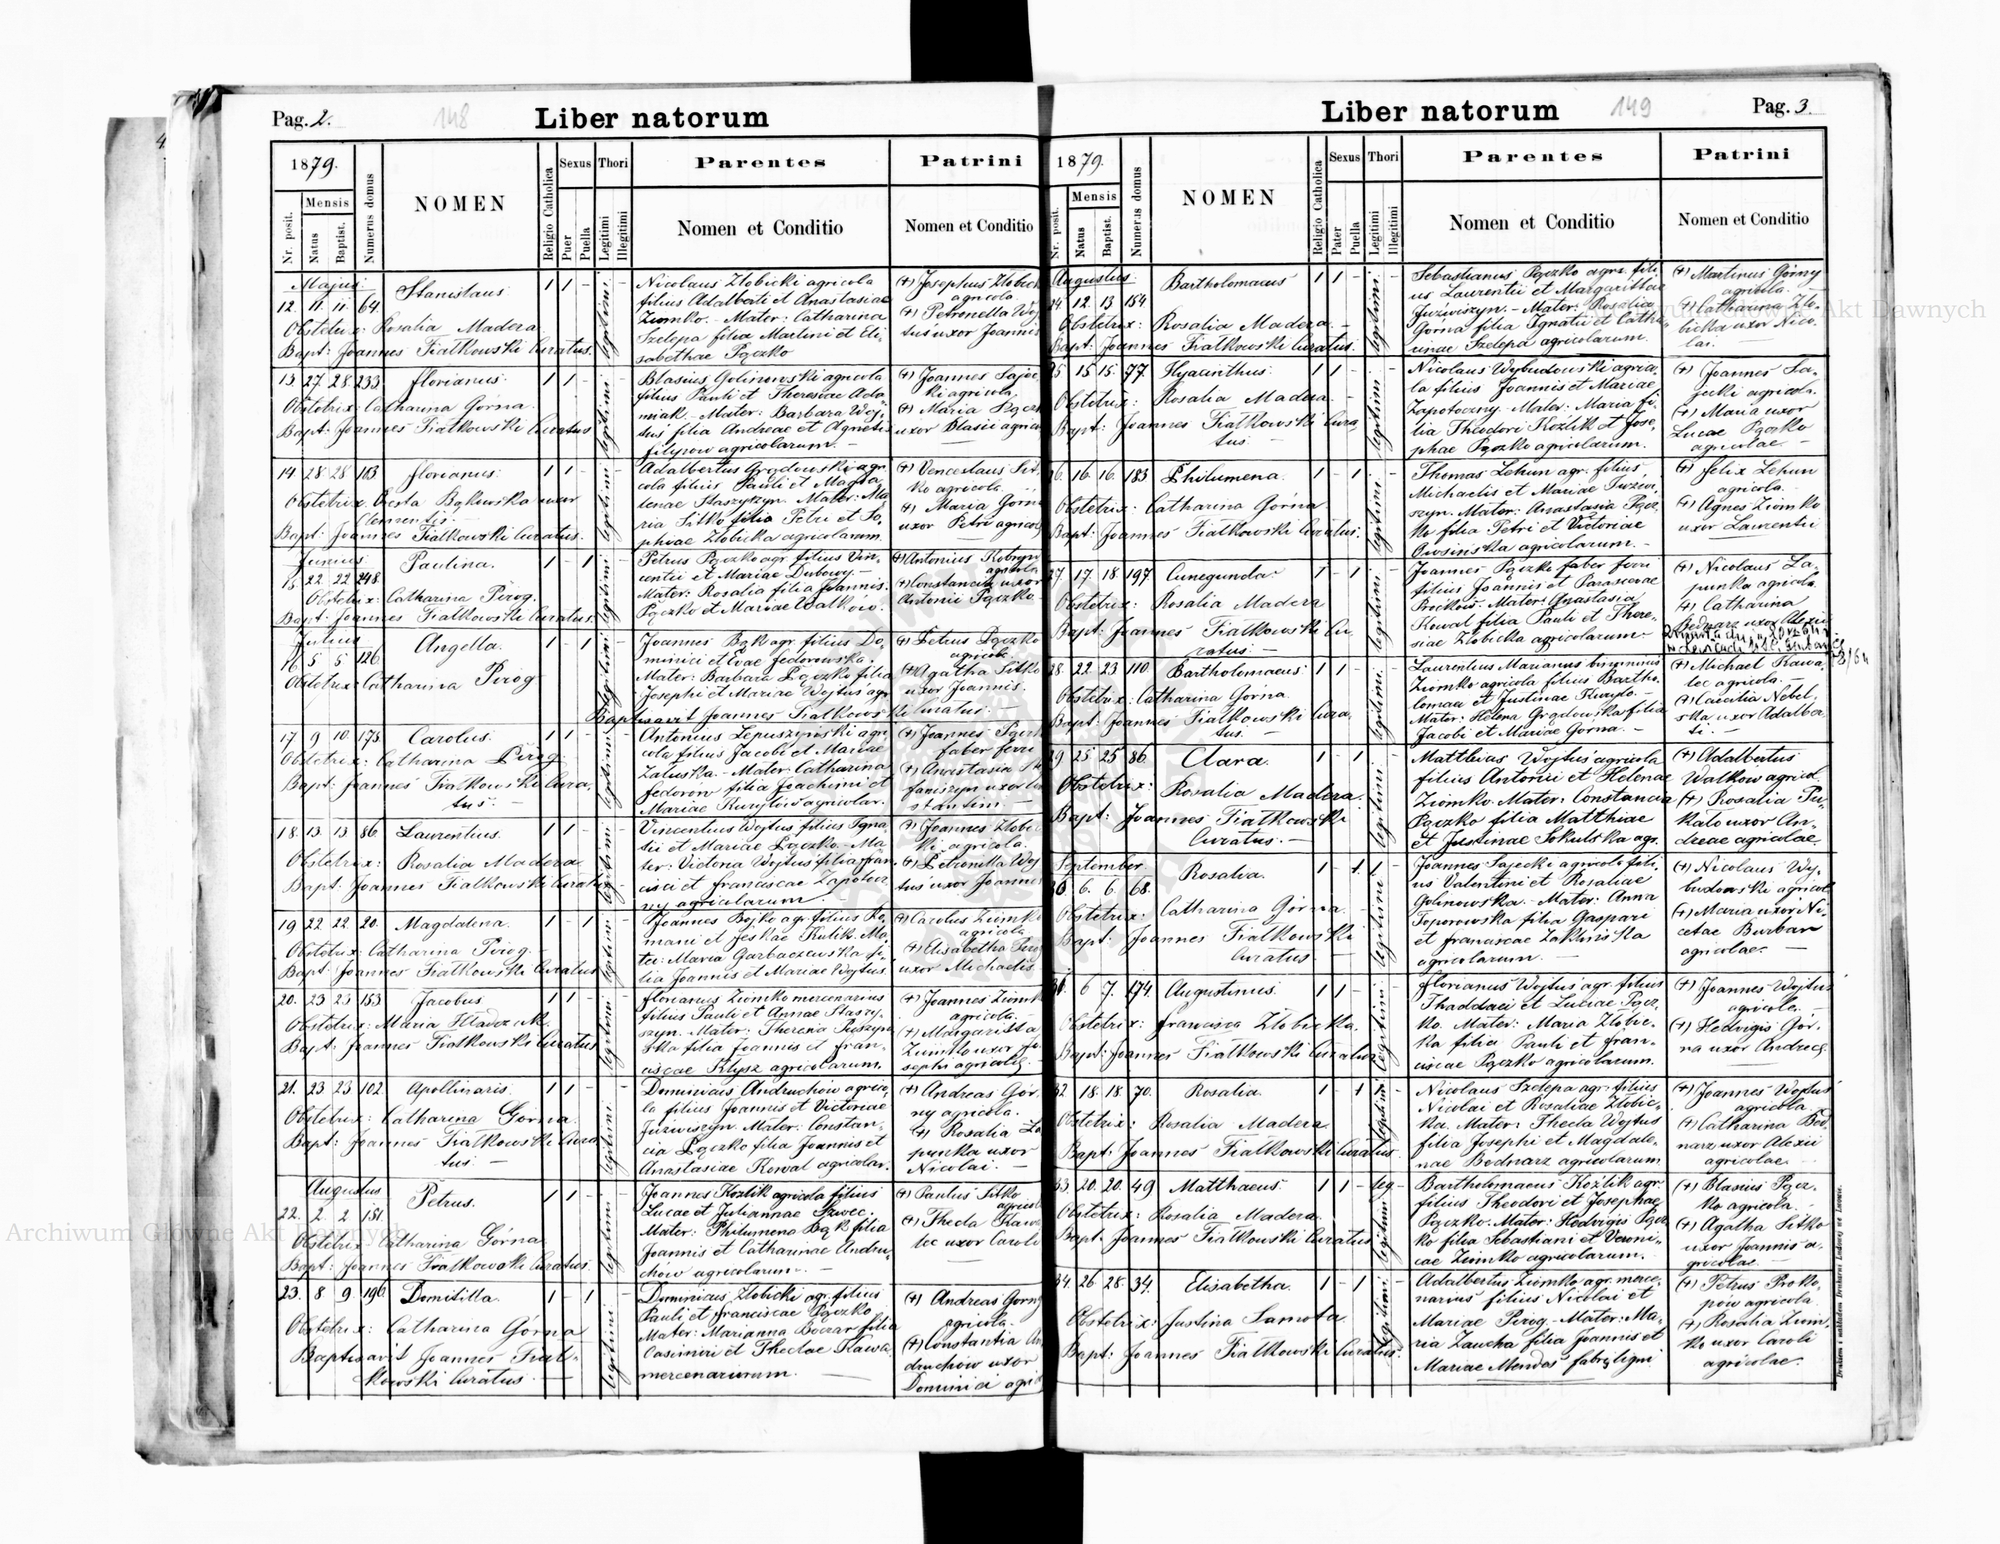 Pag. 2.
148
Liber natorum
1879.
Nr. posit.
Mensis
Natus
Baptist.
Numerus domus
NOMEN
Religio Catholica
Sexus
Puer
Puella
Thori
Legitimi
Illegitimi
Parentes
Nomen et Conditio
Patrini
Nomen et Conditio
Majus.
12. 11. 11. 64. Stanislaus 1 1 - legitimi -
Obstetrix: Rosalia Madera
Bapt: Joannes Fiałkowski Curatus.
Nicolaus Złobicki agricola
filius Adalberti et Anastasiae
Ziomko. - Mater: Catharina
Szelepa filia Martini et Eli-
sabethae Pączko
(+) Josephus Złobick
agricola
(+) Petronella Woj
tuś uxor Joannis
13. 27. 28. 233. Florianus. 1 1 - legitimi -
Obstetrix: Catharina Górna.
Bapt: Joannes Fiałkowski Curatus
Blasius Golinowski agricola
filius Pauli et Theresiae Ada-
mniak. - Mater: Barbara Woj-
tuś filia Andreae et Agnetis
Filipow agricolarum. -
(+) Joannes Sajec
ki agricola.
(+) Maria Pącz
uxor Blasii agrico
14. 28. 28. 163. Florianus. 1 1 - legitimi -
Obstetrix: Bąkowska uxor
Clementis. -
Bapt: Joannes Fiałkowski Curatus.
Adalbertus Grądowski agr.
cola filius Pauli et Magda
lenae Staszyszyn. Mater: Ma
ria Sitko filia Petri et So,
phiae Złobicka agricolarum.
(+) Venceslaus Sit.
ko agricola.
(+) Maria Górn
uxor Petri agricol
Junius
15 22 22 248. Paulina. 1 - 1 legitimi -
Obstetrix: Catharina Pirog.
Bapt: Joannes Fiałkowski Curatus.
Petrus Pączko agr. filius Vin-
centii et Mariae Dubowy. -
Mater: Rosalia filia Joannis.
Pączko et Mariae Walków.
(+) Antonius
agricola
(+) Constancia uxor
Antonii Pączko.
Julius
16 5 5 126. Angella. 1 - 1 legitimi -
Obstetrix: Catharina Pirog
Baptisavit Joannes Fiałkowski Curatus. -
Joannes Bąk agr. filius Do-
minici et Evae Fedorowska.
Mater: Barbara Pączko filia
Josephi et Mariae Wojtuś agr
(+) Petrus Pączko
agricola.
(+) Agatha Sitko
uxor Joannis.
17. 9 10. 173. Carolus. 1 1 - legitimi -
Obstetrix: Catharina Pirog
Bapt: Joannes Fiałkowski Cura,
tus. -
Antonius Lepuszyński agri
cola filius Jacobi et Mariae
Załuska. - Mater: Catharina
Fedorow filia Joachimi et
Mariae agricolar.
(+) Joannes Pączk
faber ferri
(+) Anastasia
18. 13. 13. 86. Laurentius. 1 1 - legitimi -
Obstetrix: Rosalia Madera
Bapt: Joannes Fiałkowski Curatus
Vincentius Wojtuś filius Igna-
tii et Mariae Pączko. - Ma
ter: Victoria Wojtuś filia Fran
cisci et Franciscae Zapotocz
ny agricolarum.
(+) Joannes Złobic
ki agricola.
(+) Petronella Woj
tuś uxor Joannes
19 22. 22. 20. Magdalena. 1 - 1 legitimi -
Obstetrix: Catharina Pirog.
Bapt: Joannes Fiałkowski Curatus
Joannes Bojko agr. filius Ro,
mani et Jeskae Kulik. Ma
ter: Maria Garbaczewska fi-
lia Joannis et Mariae Wojtuś.
(+) Carolus Ziomko
agricola
(+) Elisabetha Piro
uxor Michaelis
20. 23 23 153 Jacobus. 1 1 - legitimi -
Obstetrix: Maria
Bapt: Joannes Fiałkowski Curatus
Florianus Ziomko mercenarius
filius Pauli et Annae Staszy-
szyn. Mater: Theresia
ska filia Joannis et Fran-
ciscae Klysz agricolarum.
(+) Joannes Ziomk
agricola. -
(+) Margaritta
Ziomko uxor Jo
sephi agricola
21. 23 23 102. Apollinaris. 1 1 - legitimi -
Obstetrix: Catharina Górna
Bapt: Joannes Fiałkowski Cura
tus. -
Dominicus Andruchów agrico,
la filius Joannis et Victoriae
Juzwiszyn. Mater: Constan-
cia Pączko filia Joannis et
Anastasiae Kowal agricolar.
(+) Andreas Gór
ny agricola.
(+) Rosalia La
punka uxor
Nicolai. -
Augustus
22. 2. 2 181 Petrus. 1 1 - legitimi -
Obstetrix: Catharina Górna
Bapt: Joannes Fiałkowski Curatus.
Joannes Kozlik agricola filius
Lucae et Juliannae Szwec.
Mater: Philumena Bąk filia
Joannis et Catharinae Andru-
chów agricolarum. -
(+) Paulus Sitko
agricol
(+) Thecla Kawa
lec uxor Caroli
23. 8 9. 196. Domitilla. 1 - 1 legitimi -
Obstetrix: Catharina Górna
Baptisavit Joannes Fiał-
kowski Curatus. -
Dominicus Złobicki agr. filius
Pauli et Franciscae Pączko
Mater: Marianna Boczar filia
Casimiri et Theclae Kawa
mercenariorum. -
(+) Andreas Górny
agricola.
(+) Constantia An
druchów uxor
Dominici agri
Liber natorum
149
Pag. 3.
1879.
Nr. posit.
Mensis
Natus
Baptist.
Numerus domus
NOMEN
Religio Catholica
Sexus
Pater
Puella
Thori
Legitimi
Illegitimi
Parentes
Nomen et Conditio
Patrini
Nomen et Conditio
Augustus.
24. 12. 13 154 Bartholomaeus 1 1 - legitimi -
Obstetrix: Rosalia Madera. -
Bapt: Joannes Fiałkowski Curatus.
Sebastianus Pączko agr. fili-
us Laurentii et Margarittae
Juzwiszyn. - Mater: Rosalia
Górna filia Ignatii et Catha-
rinae Szelepa agricolarum.
(+) Martinus Górny
agricola. -
(+) Catharina Zło-
bicka uxor Nico.
lai. -
25 15 15. 77. Hyacinthus. 1 1 - legitimi -
Obstetrix: Rosalia Madera
Bapt: Joannes Fiałkowski Cura
tus -
Nicolaus Wybudowski agrico-
la filius Joannis et Mariae
Zapotoczny - Mater: Maria fi-
lia Theodori Kozlik et Jose,
phae Pączko agricolarum.
(+) Joannes Sa-
jecki agricola.
(+) Maria uxor
Lucae Pączko
agricolae. -
26. 16. 16. 183 Philumena. 1 - 1 legitimi -
Obstetrix: Catharina Górna
Bapt: Joannes Fiałkowski Curatus.
Thomas Lehun agr. filius
Michaelis et Mariae Juzwi,
szyn. Mater: Anastasia Pącz
ko filia Petri et Victoriae
Owsińska agricolarum. -
(+) Felix Lehun
agricola.
(+) Agnes Ziomko
uxor Laurentii
27. 17. 18. 197. Cunegunda. 1 - 1 legitimi -
Obstetrix: Rosalia Madera
Bapt: Joannes Fiałkowski Cu,
ratus -
Joannes Pączko faber ferri
filius Joannis et Parascevae
Proćkow. Mater: Anastasia
Kowal filia Pauli et There-
siae Złobicka agricolarum. -
(+) Nicolaus La-
punka agricola
(+) Catharina
Bednarz uxor Alexii
28. 22. 23 110 Bartholomaeus 1 1 - legitimi -
Obstetrix: Catharina Górna
Bapt: Joannes Fiałkowski Cura,
tus. -
Laurentius Marianus binominus
Ziomko agricola filius Bartho-
lomaei et Justinae Kurylo. -
Mater: Helena Grądowska filia
Jacobi et Mariae Górna. -
(+) Michael Kawa,
lec agricola. -
(+) Caecilia Nebel-
ska uxor Adalber
ti. -
29 25 25 86. Clara. 1 - 1 legitimi -
Obstetrix: Rosalia Madera.
Bapt: Joannes Fiałkowski
Curatus. -
Matthias Wojtuś agricola
filius Antonii et Helenae
Ziomko. Mater: Constancia
Pączko filia Matthiae
et Justinae Sokulska agr.
(+) Adalbertus
Walkow agricol.
(+) Rosalia Pu-
kało uxor An-
dreae agricolae.
September
30 6. 6. 68. Rosalia. 1 - 1 legitimi -
Obstetrix: Catharina Górna
Bapt: Joannes Fiałkowski
Curatus. -
Joannes Sajecki agricola fili-
us Valentini et Rosaliae
Golinowska. - Mater: Anna
Toporowska filia Gaspari
et Franciscae Zaklińska
agricolarum. -
(+) Nicolaus Wy-
budowski agricol
(+) Maria uxor Ni-
cetae Burban
agricolae. -
31. 6 7. 174. Augustinus. 1 1 - legitimi -
Obstetrix: Francisca Złobicka.
Bapt: Joannes Fiałkowski Curatus
Florianus Wojtuś agr. filius
Thaddaei et Luciae Pącz,
ko. Mater: Maria Złobic-
ka filia Pauli et Fran-
ciscae Pączko agricolarum.
(+) Joannes Wojtuś
agricola. -
(+) Hedvigis Gór-
na uxor Andreae.
32 18. 18. 70. Rosalia. 1 - 1 legitimi -
Obstetrix: Rosalia Madera
Bapt: Joannes Fiałkowski Curatus
Nicolaus Szelepa agr. filius
Nicolai et Rosaliae Złobic-
ka. Mater: Thecla Wojtuś
filia Josephi et Magdale-
nae Bednarz agricolarum
(+) Joannes Wojtuś
agricola
(+) Catharina Bed-
narz uxor Alexii
agricolae.
33. 20. 20. 49 Matthaeus. 1 1 - leg-
Obstetrix: Rosalia Madera.
Bapt: Joannes Fiałkowski Curatus
Bartholomaeus Kozlik agr.
filius Theodori et Josephae
Pączko. Mater: Hedvigis Pącz
ko filia Sebastiani et Veroni-
cae Ziomko agricolarum.
(+) Blasius Pącz-
ko agricola.
(+) Agatha Sitko
uxor Joannis a-
gricolae.
34. 26 28. 34. Elisabetha. 1 - 1 legitimi -
Obstetrix: Justina Samota.
Bapt: Joannes Fiałkowski Curatus.
Adalbertus Ziomko agr. merce-
narius filius Nicolai et
Mariae Pirog. Mater: Ma-
ria Zaucha filia Joannis et
Mariae Mendas fabri ligni
(+) Petrus Proko-
pow agricola.
(+) Rosalia Ziom-
ko uxor Caroli
agricolae.
Archiwum Główne Akt Dawnych
Archiwum Główne Akt Dawnych